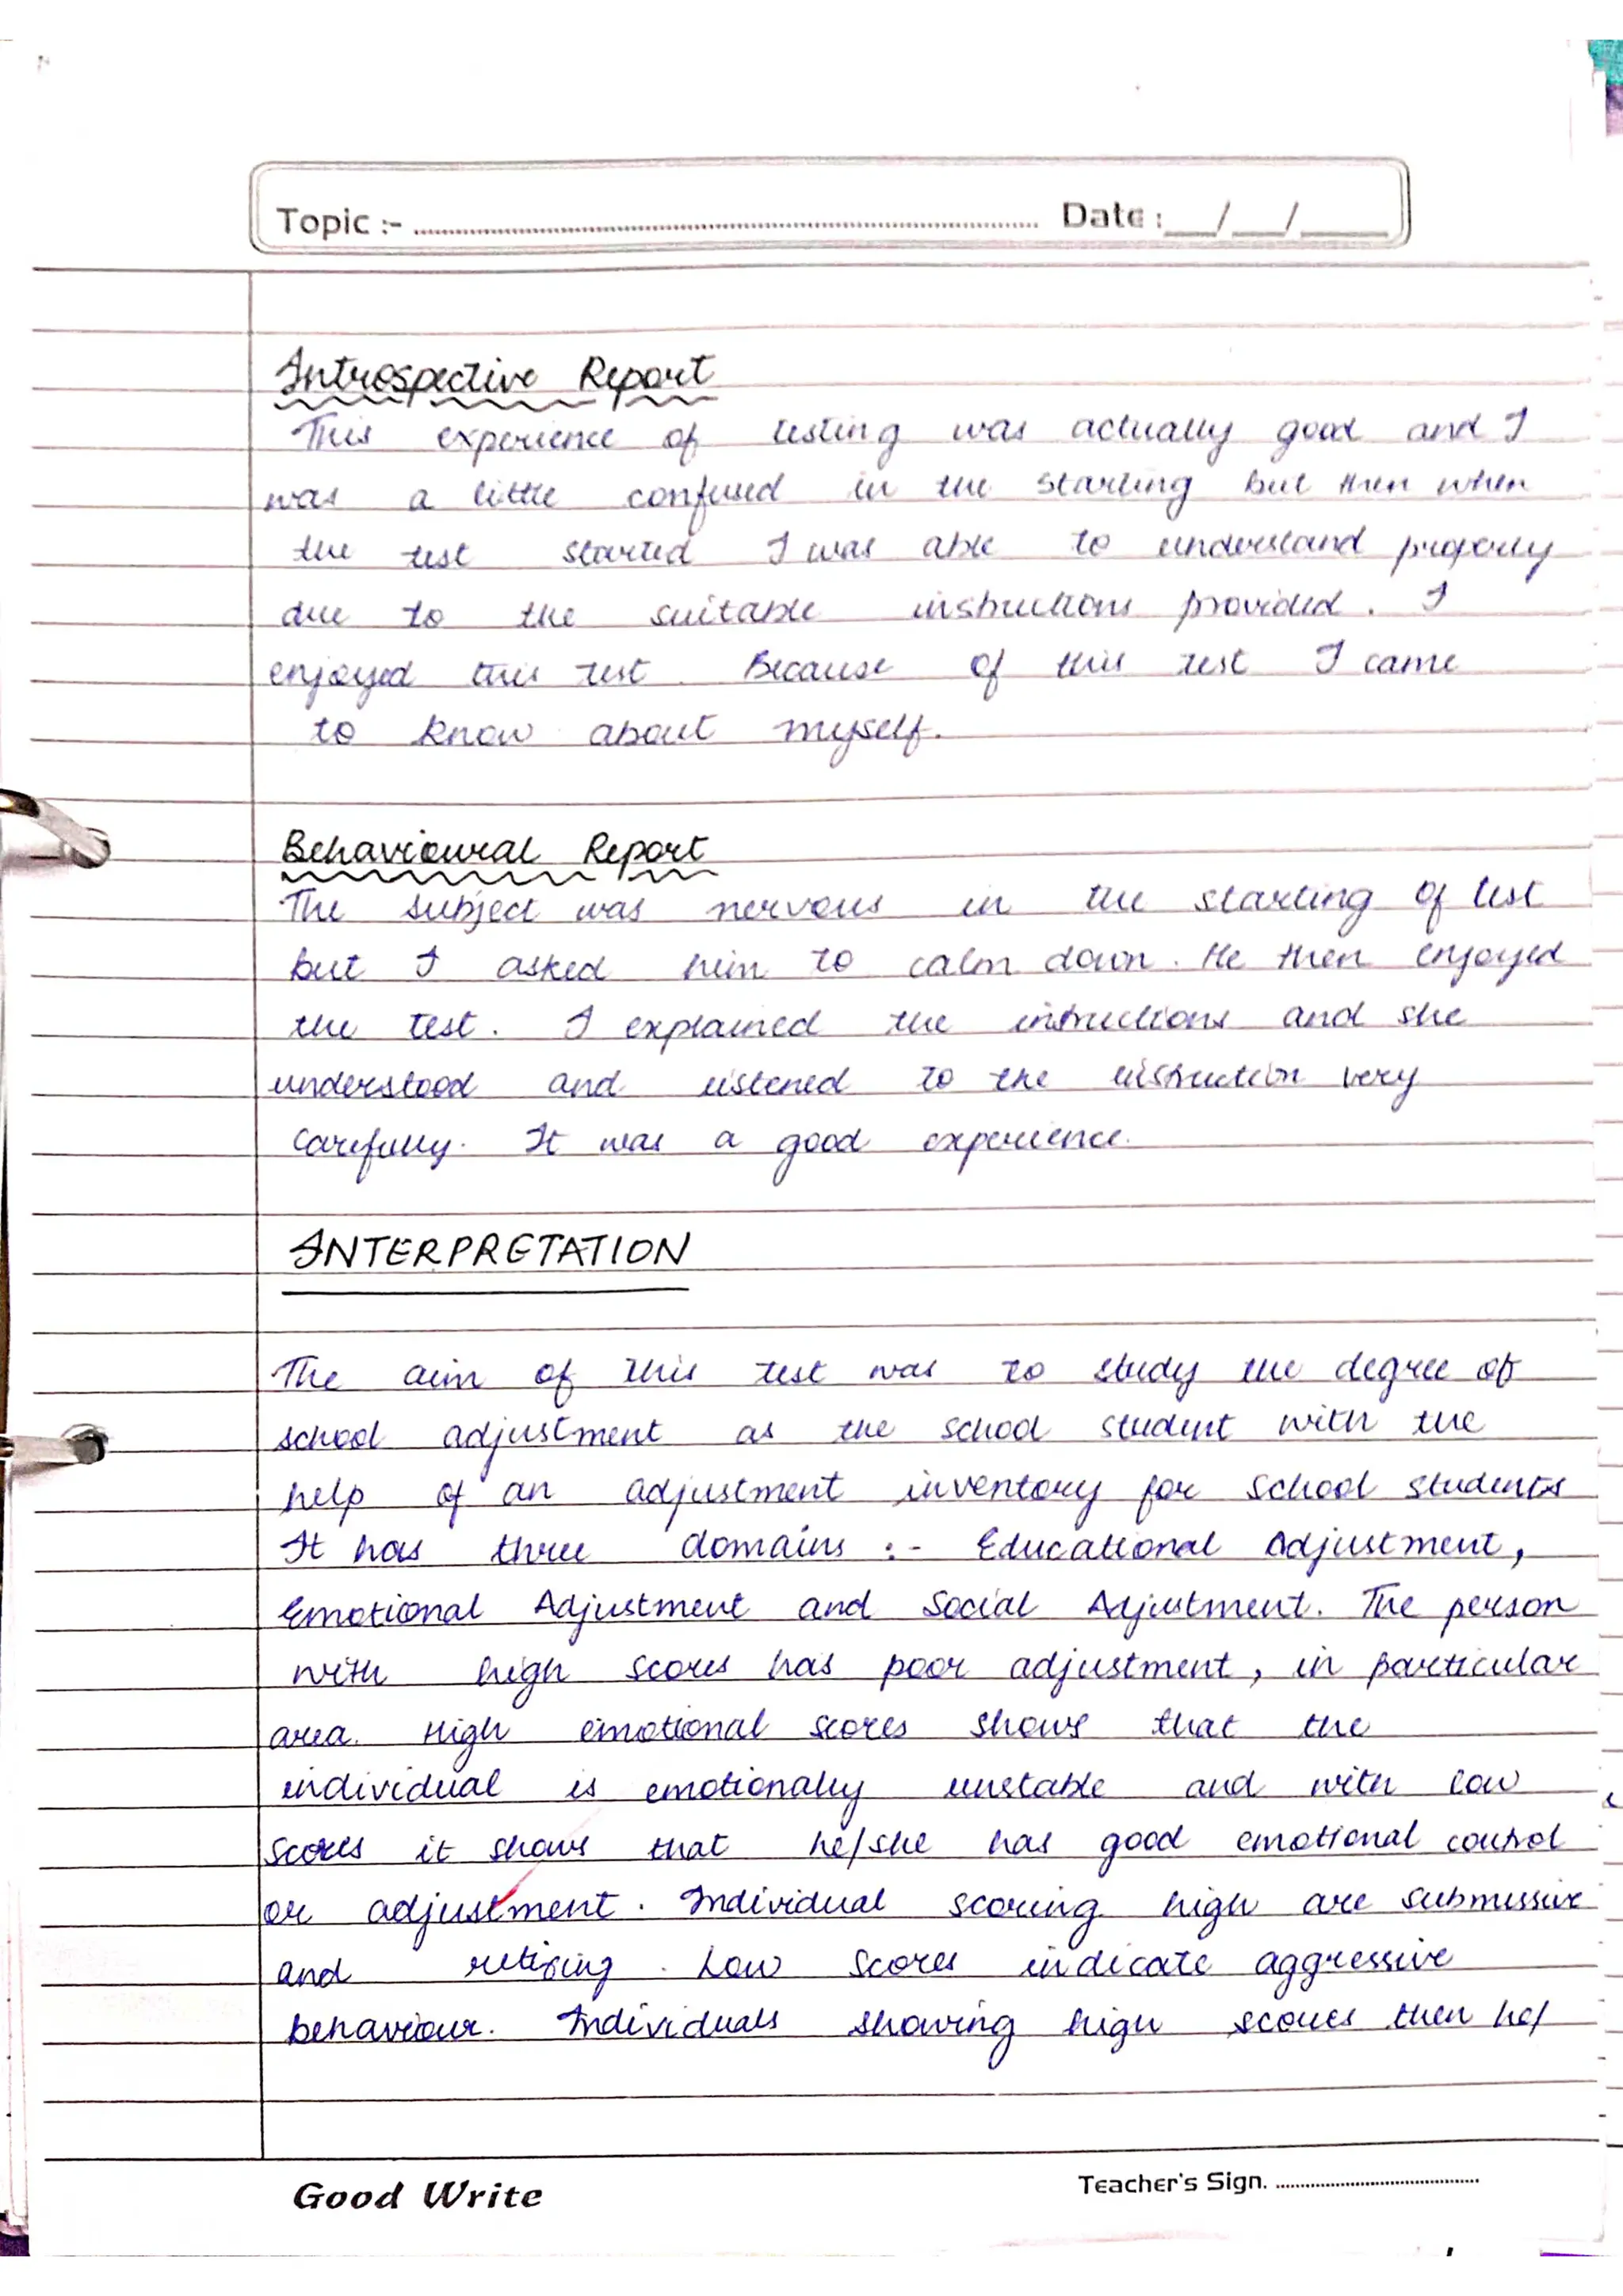 Topic :- Date : __/__/____
Introspective Report
This experience of testing was actually good and I
was a little confused in the starting but then when
the test started I was able to understand properly
due to the suitable instructions provided. I
enjoyed this test. Because of this test I came
to know about myself.
Behavioural Report
The subject was nervous in the starting of test
but I asked him to calm down. He then enjoyed
the test. I explained the intructions and she
understood and listened to the instruction very
carefully. It was a good experience.
INTERPRETATION
The aim of this test was to study the degree of
school adjustment as the school student with the
help of an adjustment inventory for school students
It has three domains :- Educational Adjustment,
Emotional Adjustment and Social Adjustment. The person
with high scores has poor adjustment, in particular
area. High emotional scores shows that the
individual is emotionally unstable and with low
scores it shows that he/she has good emotional control
or adjustment. Individual scoring high are submissive
and retiring. Low scores indicate aggressive
behaviour. Individuals showing high scores then he/
Good Write
Teacher's Sign.